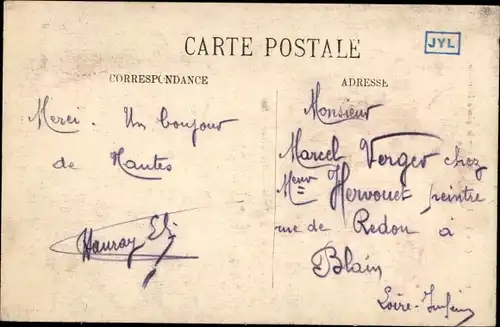 CARTE POSTALE
JYL
CORRESPONDANCE
ADRESSE
Merci. Un bonjour
de Nantes
Monsieur
Marcel Verger chez
Meur Hervouet peintre
rue de Redon à
Blain
Loire-Infein